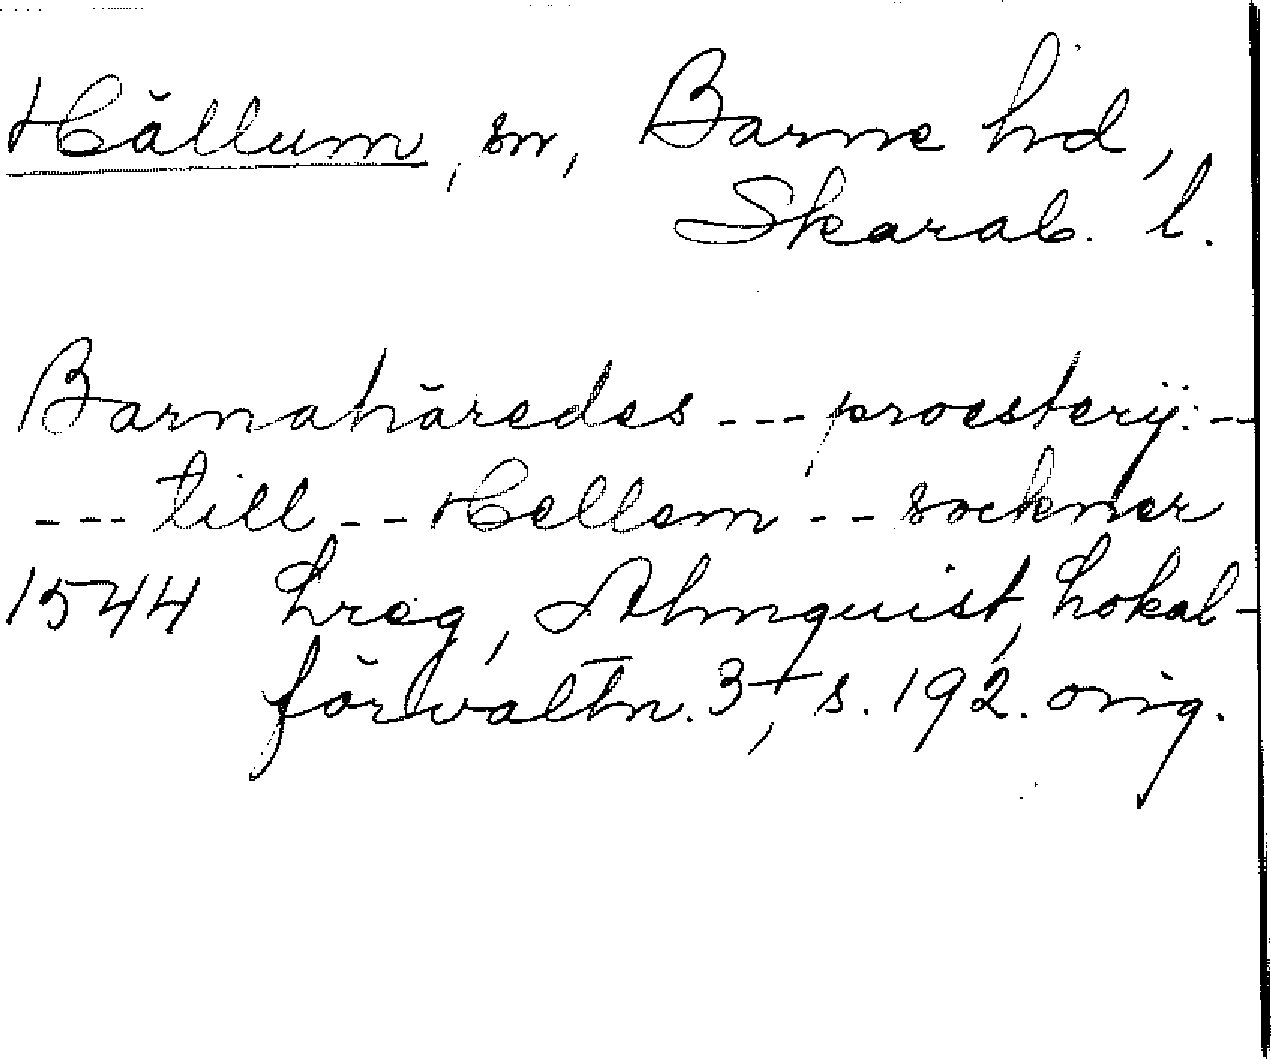 Hällum, sn, Barne hd,
Skarab. l.
Barnahäredes --- proesterij: --
--- till --- Hellem --- sockner
1544 Lreg, Almquist, Lokal-
förvaltn. 3, s. 192. orig.